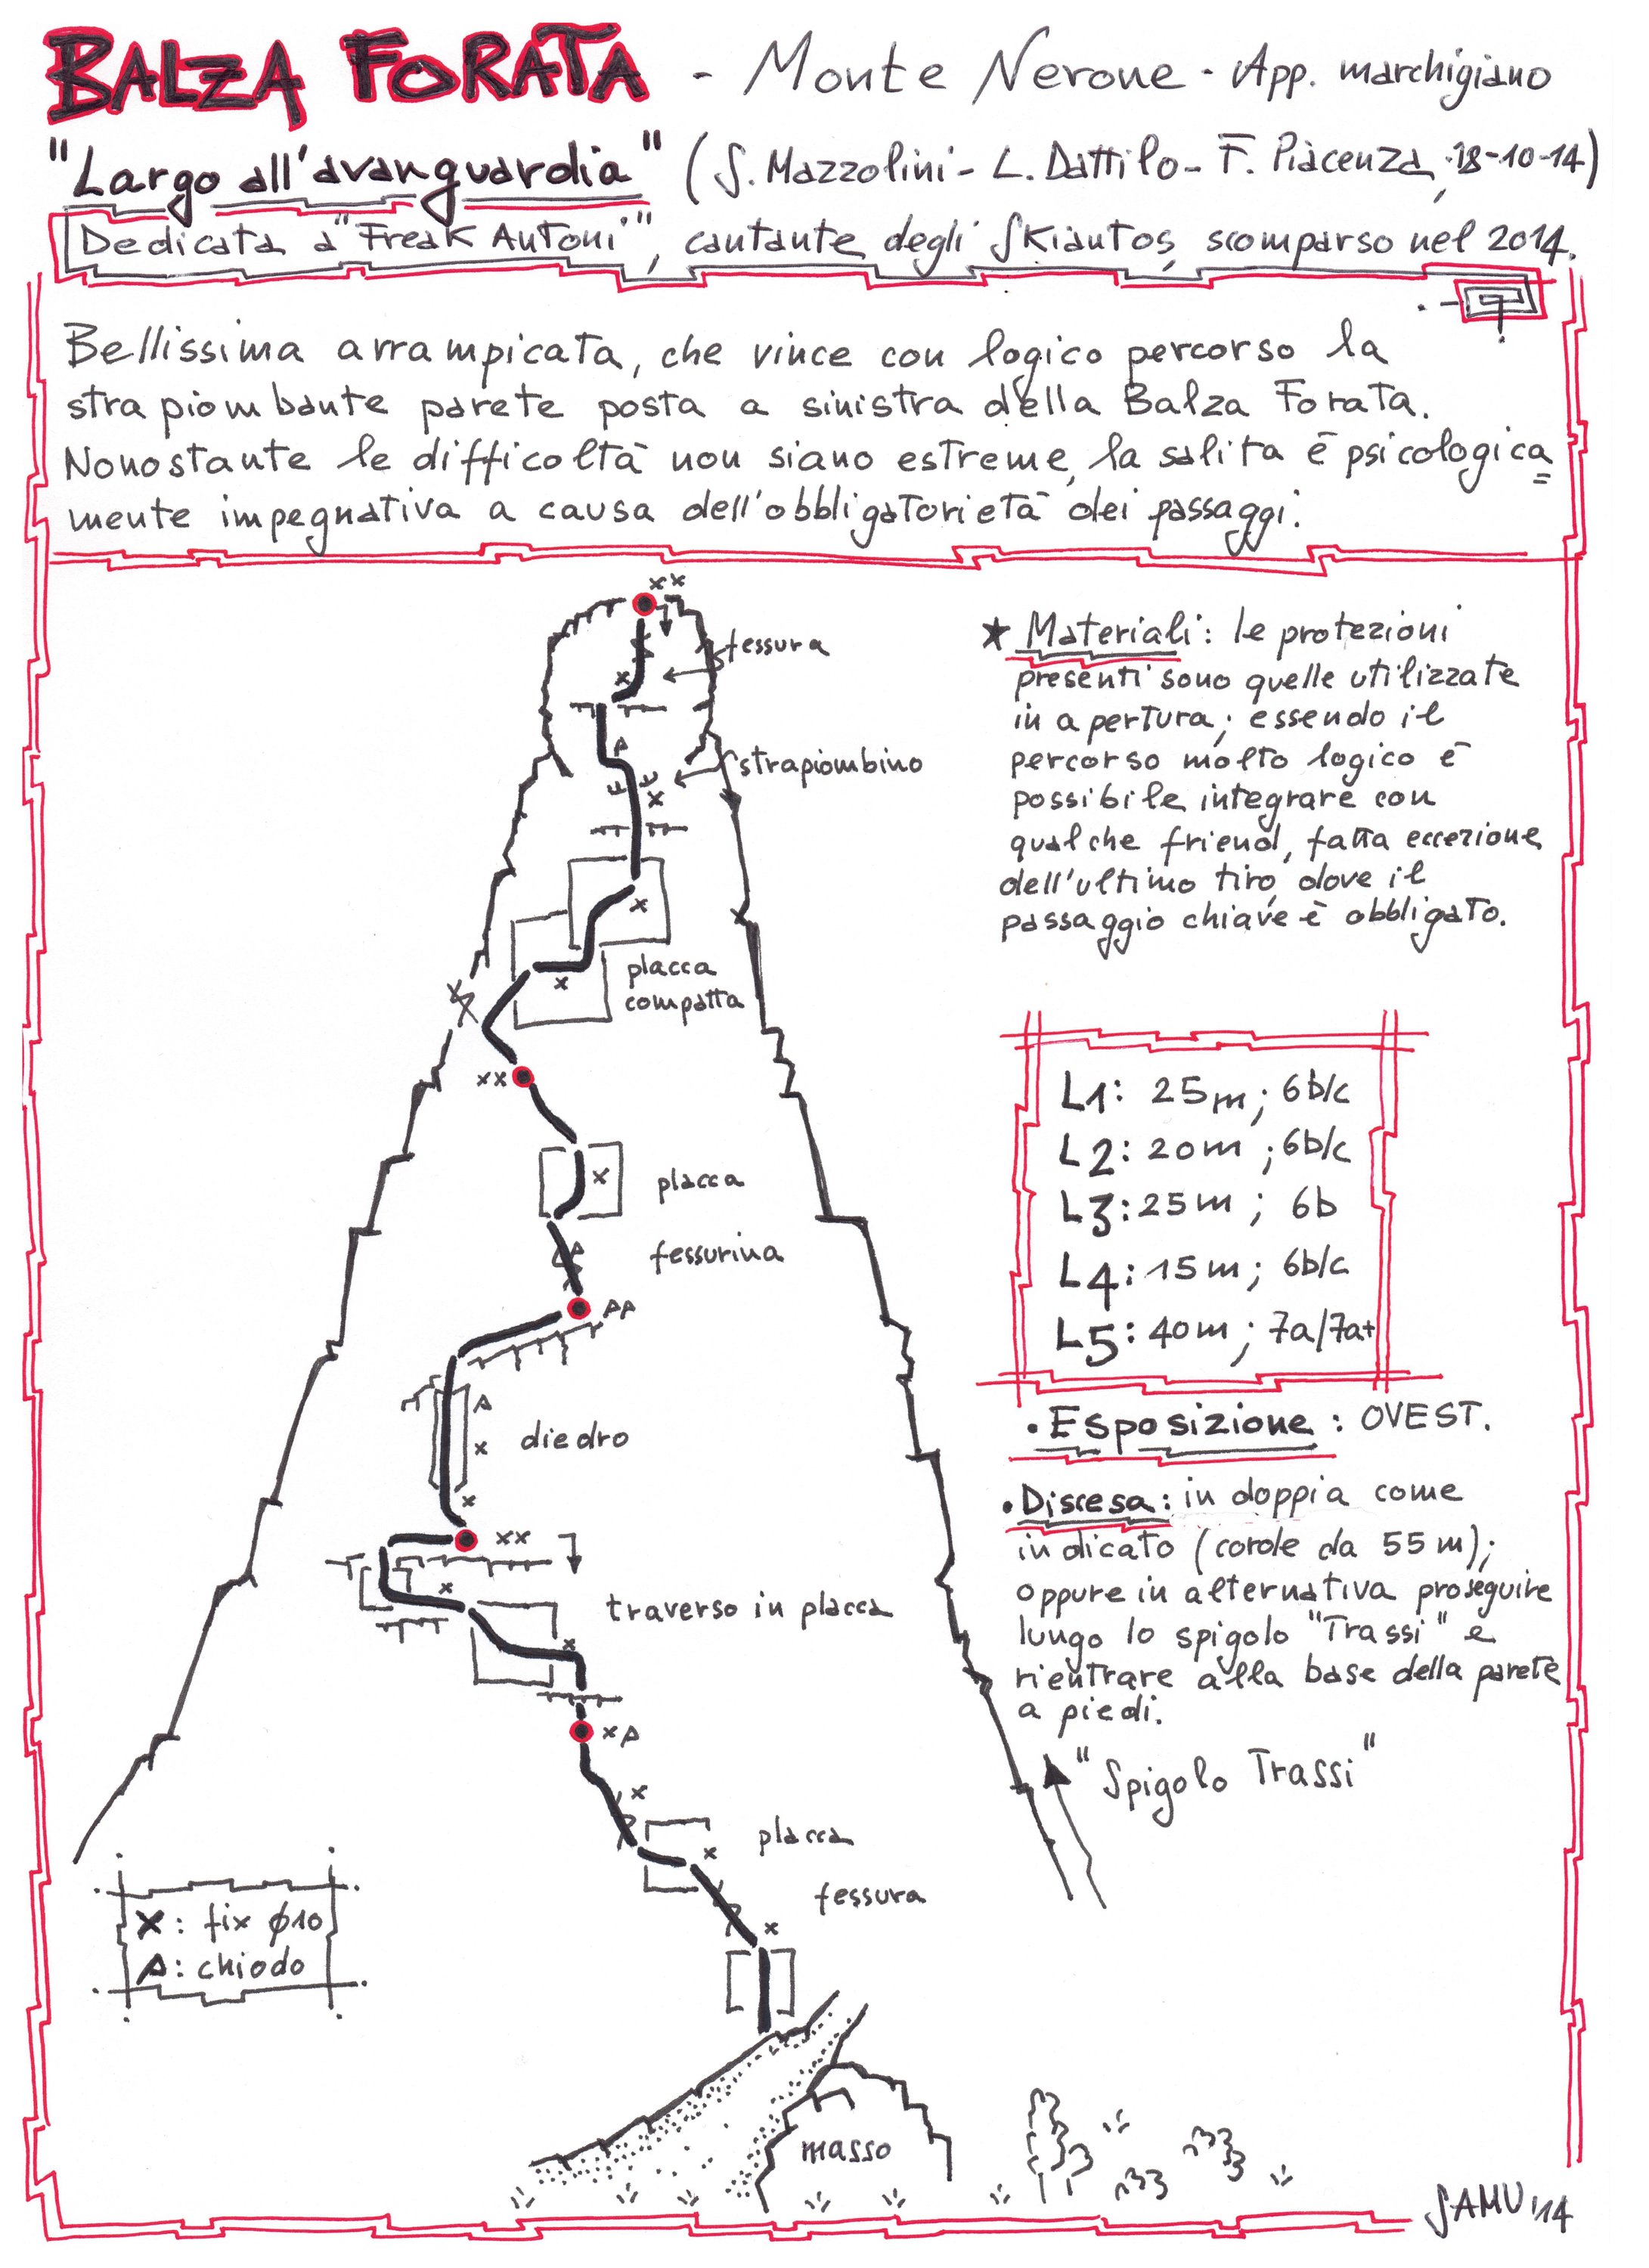 BALZA FORATA - Monte Nerone - App. marchigiano
"Largo all'avanguardia" (S. Mazzolini - L. Dattilo - F. Piacenza, 18-10-14)
Dedicata a "Freak Antoni", cantante degli Skiantos, scomparso nel 2014.
Bellissima arrampicata, che vince con logico percorso la
strapiombante parete posta a sinistra della Balza Forata.
Nonostante le difficoltà non siano estreme, la salita è psicologica=
mente impegnativa a causa dell'obbligatorietà dei passaggi.
xx
fessura
x
strapiombino
x
x
placca
compatta
x
xx
placca
x
fessurina
diedro
x
x
xx
x
traverso in placca
x
x
x
placca
x
fessura
x
masso
★ Materiali: le protezioni
presenti sono quelle utilizzate
in apertura; essendo il
percorso molto logico è
possibile integrare con
qualche friend, fatta eccezione
dell'ultimo tiro, dove il
passaggio chiave è obbligato.
L1: 25m; 6b/c
L2: 20m; 6b/c
L3: 25m; 6b
L4: 15m; 6b/c
L5: 40m; 7a/7a+
• Esposizione: OVEST.
• Discesa: in doppia come
indicato (corde da 55 m);
oppure in alternativa proseguire
lungo lo spigolo "Trassi" e
rientrare alla base della parete
a piedi.
"Spigolo Trassi"
X: fix ø10
: chiodo
SAMU '14